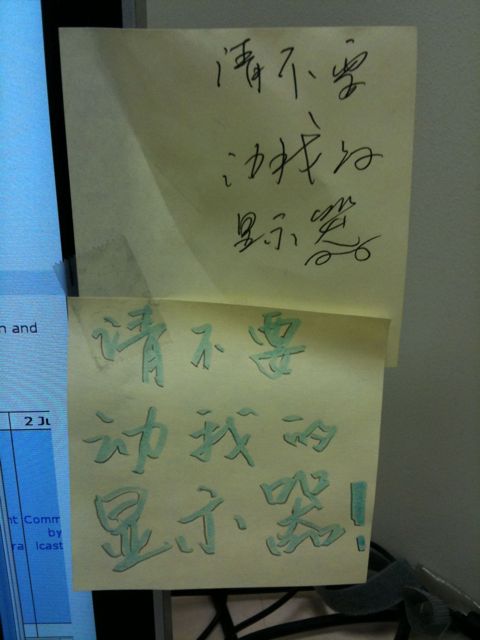 请不要
动我的
显示器
请不要
动我的
显示器!
n and
2 Ju
nt Comm
by
ral lcast